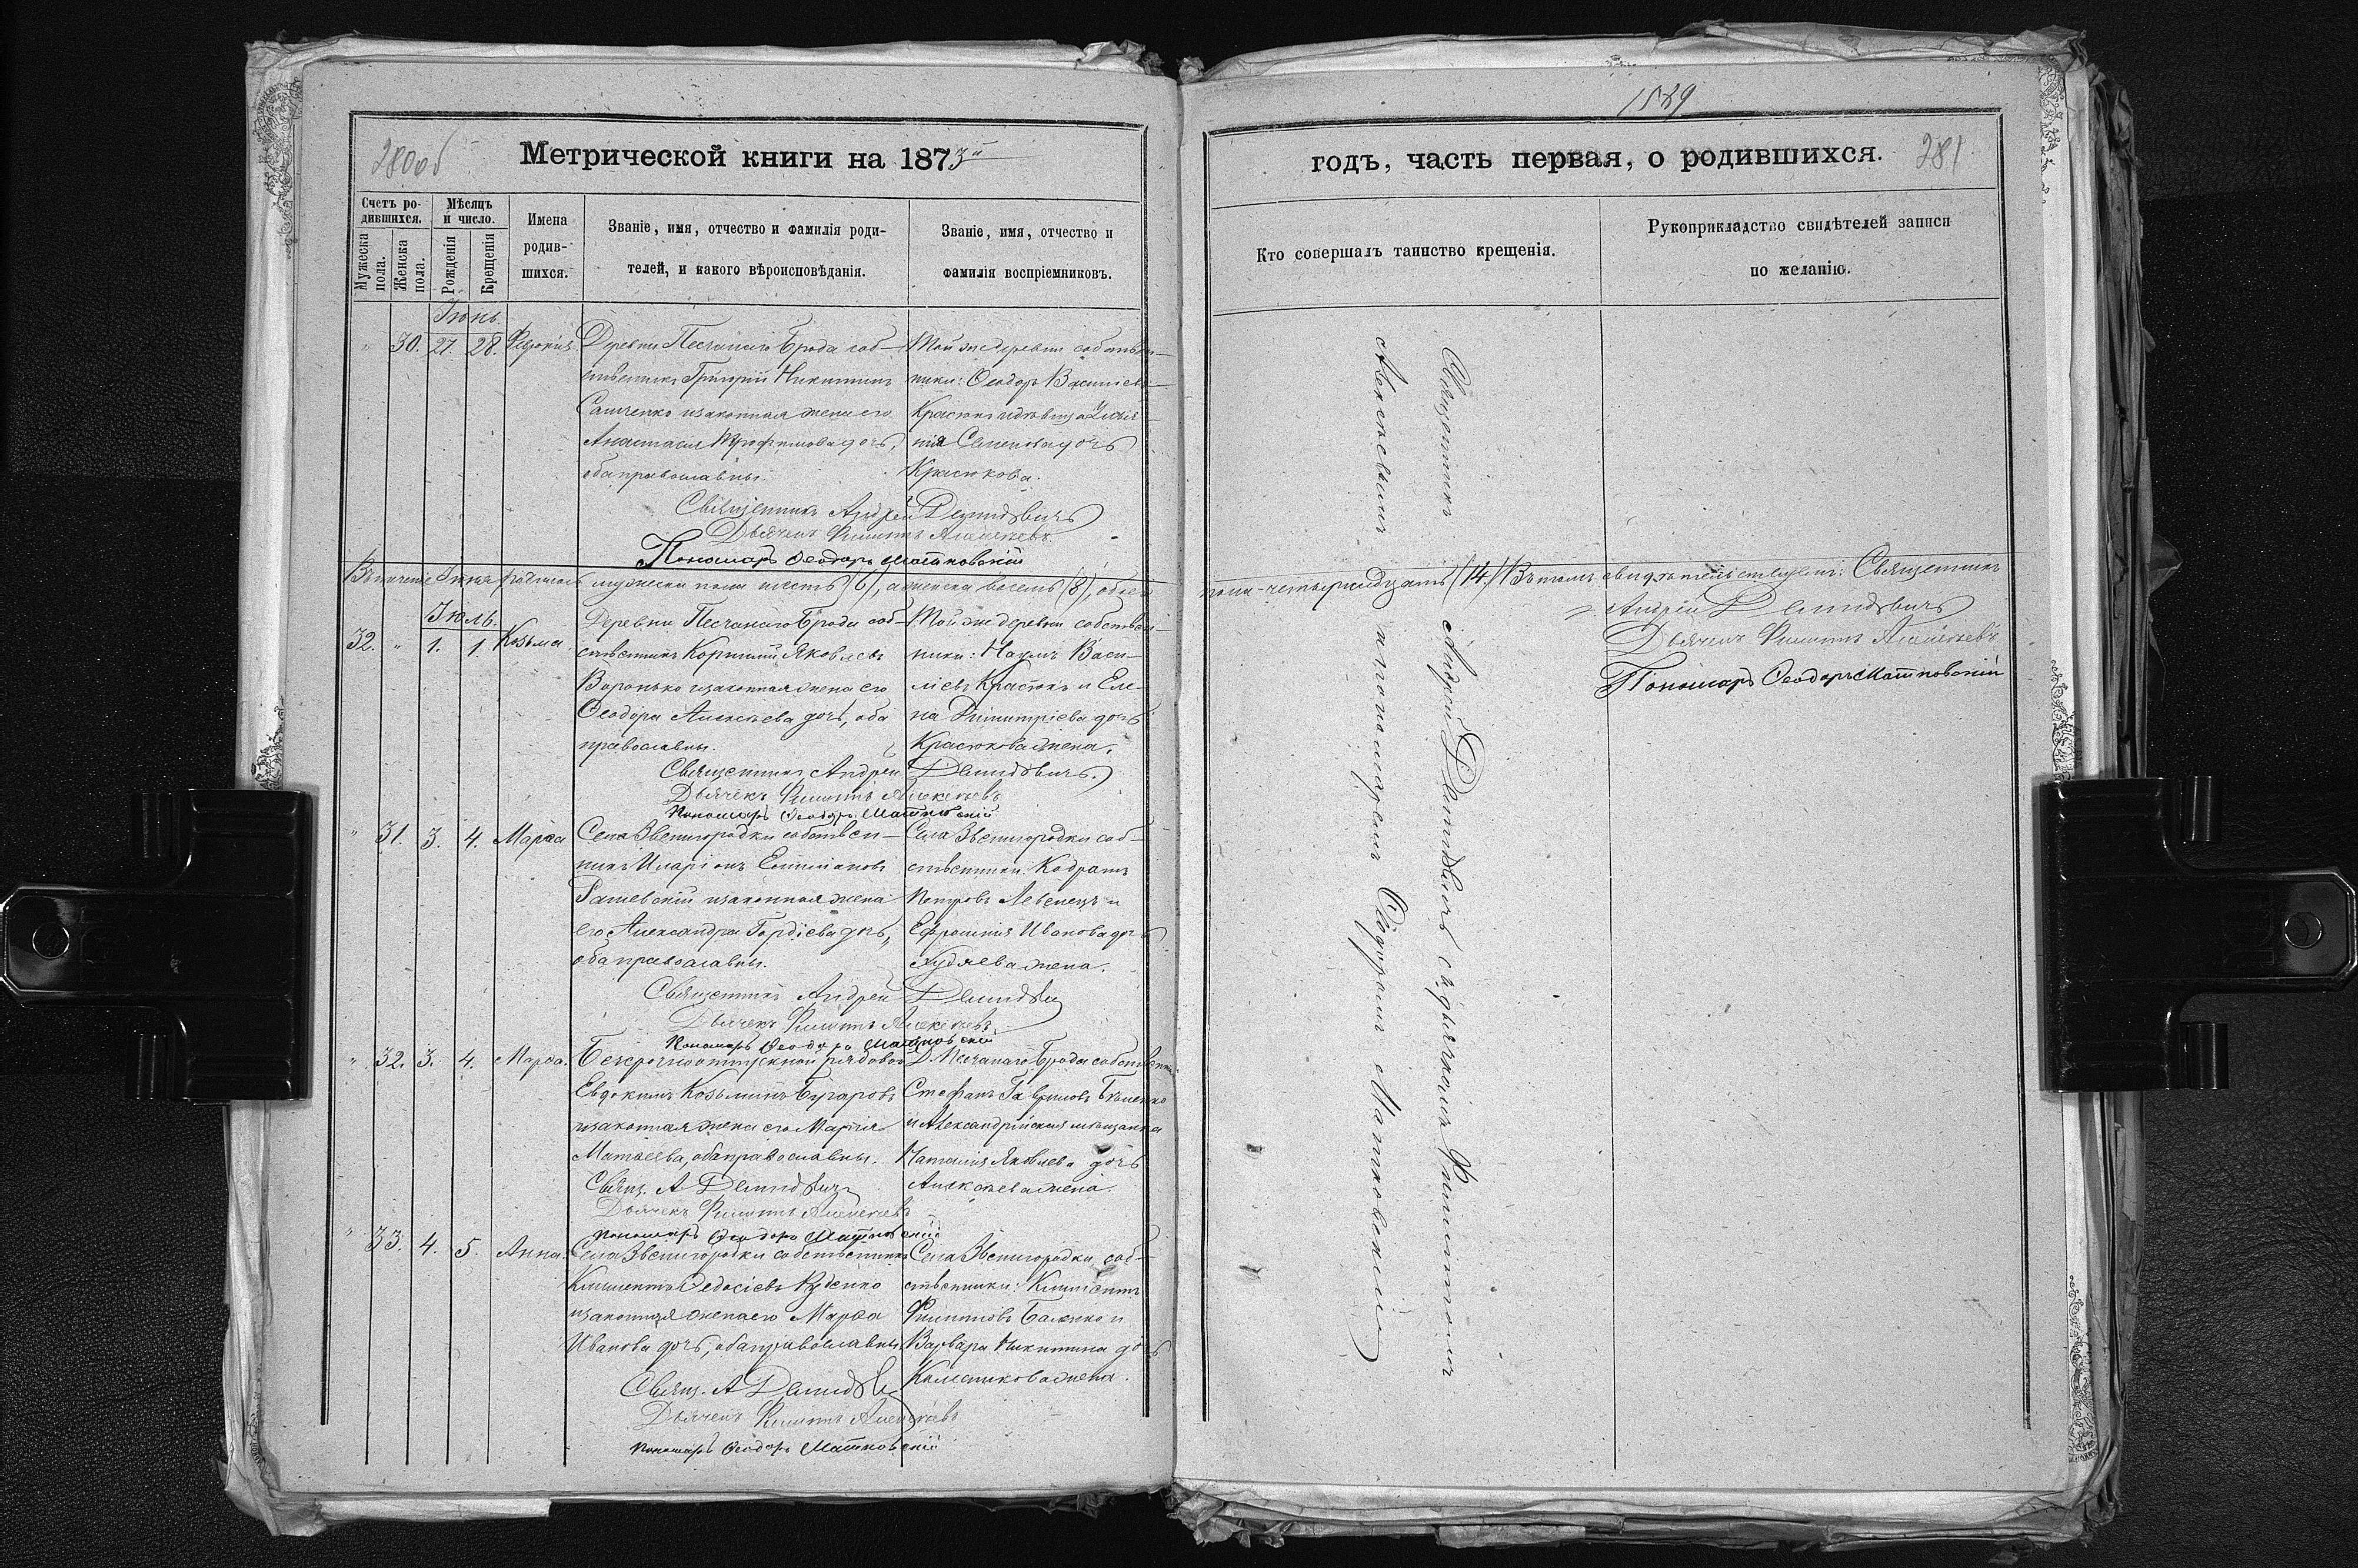 280об
Метрической книги на 1873й
Счетъ ро-
дившихся.
Мѣсяцъ
и число.
Мужеска
пола.
Женска
пола.
Рожденія
Крещенія
Имена
родив-
шихся.
Званіе, имя, отчество и фамилія роди-
телей, и какого вѣроисповѣданія.
Званіе, имя, отчество и
фамилія воспріемниковъ.
Іюнь
" 30. 27. 28. Феврония
Деревни Песчанаго Брода соб-
ственникъ Григорій Никитинъ
и законная жена его
Анастасія Трофимова дочь,
оба православны.
Той же деревни собствен-
ники: Ѳеодоръ Василіевъ
Красюкъ и дѣвица
Семенова дочь
Красюкова.
Священникъ Андрей Демидовичъ
Дьячекъ Филиппъ Алексѣевъ
Пономарь Ѳеодоръ Матковскій
Въ теченіе Іюня родилось мужеска пола шесть (6), а женска восемь (8), обоего
Іюль.
32. " 1. 1. Козьма
Деревни Песчанаго Брода соб-
ственникъ Корнилій Яковлевъ
Воронько и законная жена его
Ѳеодора Алексѣева дочь, оба
православны.
Той же деревни собствен-
ники: Наумъ Васи-
ліевъ Красюкъ и Еле-
на Димитріева дочь
Красюкова жена.
Священникъ Андрей Демидовичъ.
Дьячекъ Филиппъ Алексѣевъ
Пономарь Ѳеодоръ Матковскій
" 31. 3. 4. Марѳа
Села Звенигородки собствен-
никъ Иларіонъ Емиліановъ
Рашевскій и законная жена
его Александра Гордіева дочь,
оба православны.
Села Звенигородки соб-
ственники: Кодратъ
Петровъ Левенецъ и
Ефросинія Иванова дочь
жена.
Священникъ Андрей Демидович
Дьячекъ Филиппъ Алексѣевъ
Пономарь Ѳеодоръ Матковскій
" 32. 3. 4. Марѳа.
Безсрочноотпускной рядовой
Евдокимъ Козьминъ
и законная жена его Марія
Матѳеева, оба православны.
Д. Песчанаго Брода собственникъ
Стефанъ Гавриловъ
и Александрійская мѣщанка
Наталія Яковлева дочь
Алексѣева жена.
Свящ. А Демидович
Дьячекъ Филиппъ Алексѣевъ
Пономарь Ѳеодоръ Матковскій
" 33. 4. 5. Анна.
Села Звенигородки собственникъ
Климентъ Ѳедосіевъ
и законная жена его Марѳа
Иванова дочь, оба православны
Села Звенигородки соб-
ственники: Климентъ
Филипповъ Баленко и
Варвара Никитина дочь
жена.
Свящ. А Демидович
Дьячекъ Филиппъ Алексѣевъ
Пономарь Ѳеодоръ Матковскій
1589
годъ, часть первая, о родившихся.
281
Кто совершалъ таинство крещенія.
Рукоприкладство свидѣтелей записи
по желанію.
Священникъ Андрей Демидовичъ съ дьячкомъ Филиппомъ
Алексѣевымъ и пономаремъ Ѳеодоромъ Матковскимъ
пола - четырнадцать (14) Въ томъ свидѣтельствуемъ: Священникъ
Андрей Демидовичъ
Дьячекъ Филиппъ Алексѣевъ
Пономарь Ѳеодоръ Матковскій